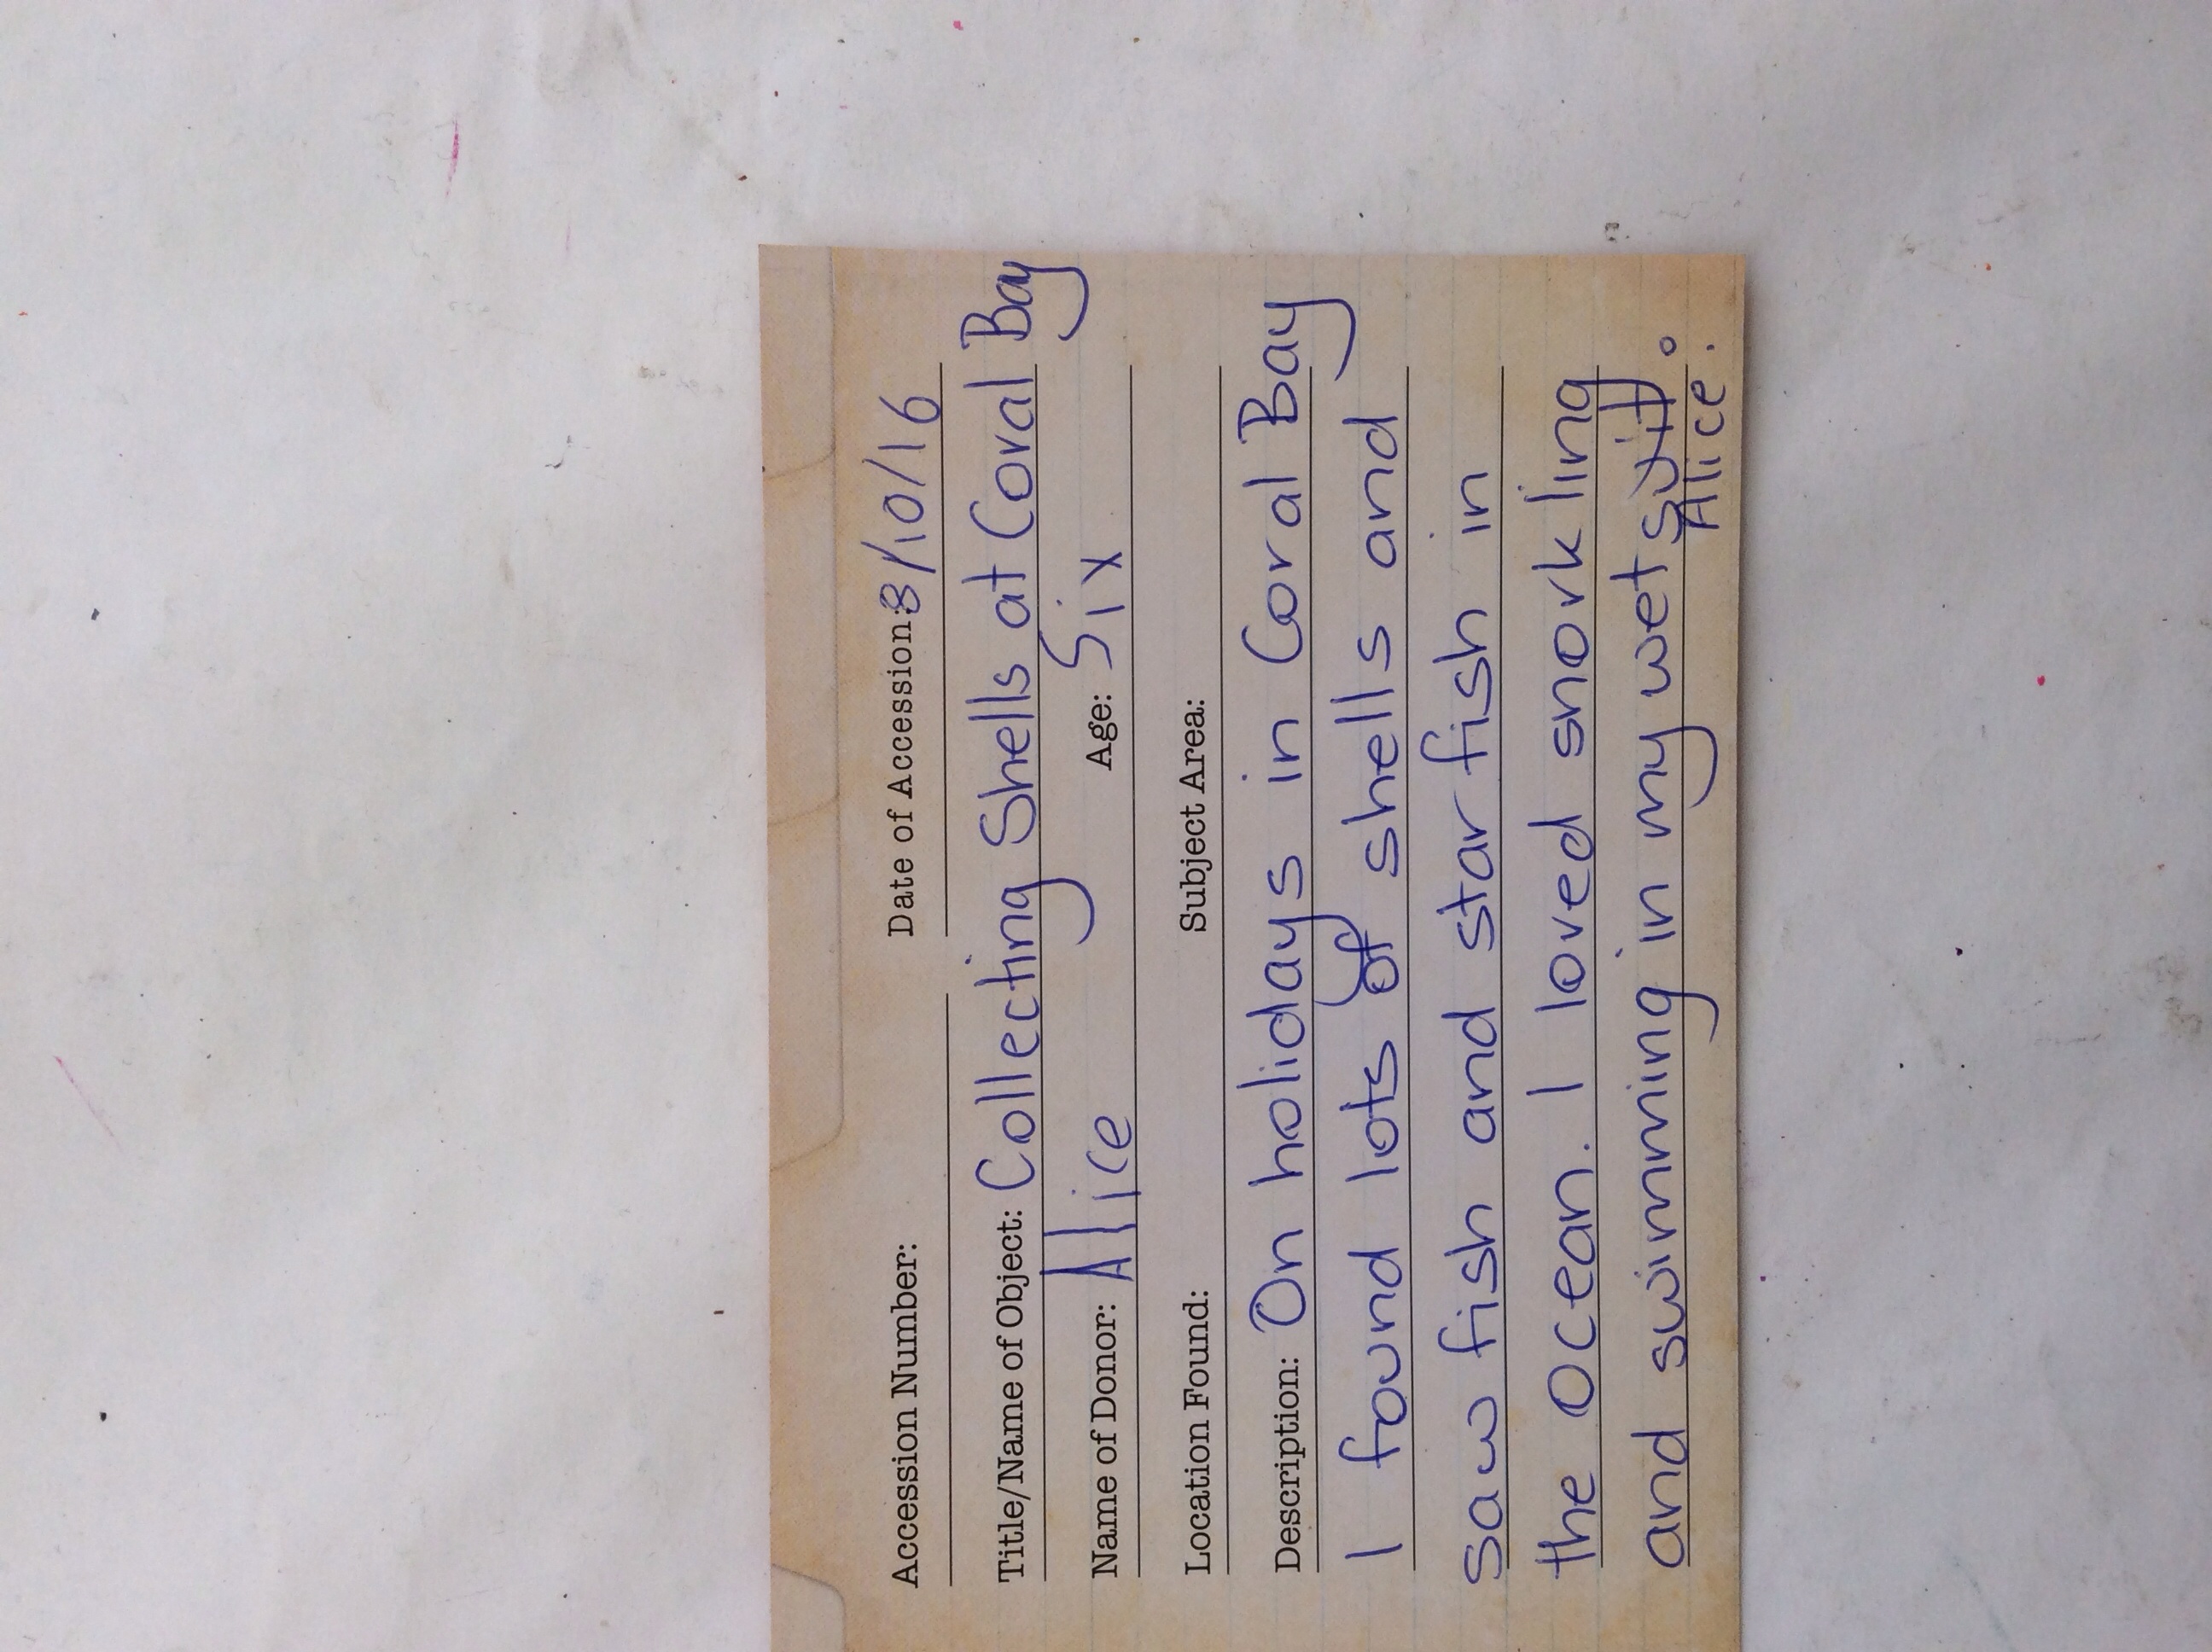 Accession Number: Date of Accession: 8/10/16
Title/Name of Object: Collecting Shells at Coral Bay
Name of Donor: Alice Age: Six
Location Found: Subject Area:
Description: On holidays in Coral Bay
I found lots of shells and
saw fish and starfish in
the Ocean. I loved snorkling
and swimming in my wetsuit.
Alice.